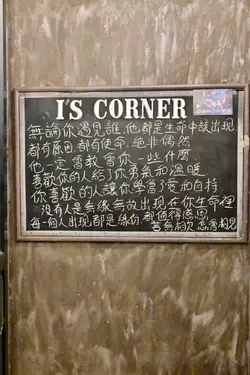 I'S CORNER
無論你遇見誰.他都是生命中該出現
都有原因.都有使命.絕非偶然
他一定會教會你一些什麼
喜歡你的人給了你勇氣和溫暖
你喜歡的人讓你學會了愛和自持
沒有人是無緣無故出現在你生命裡
每一個人出現都是緣份.都值得感恩
若無相欠怎會相見